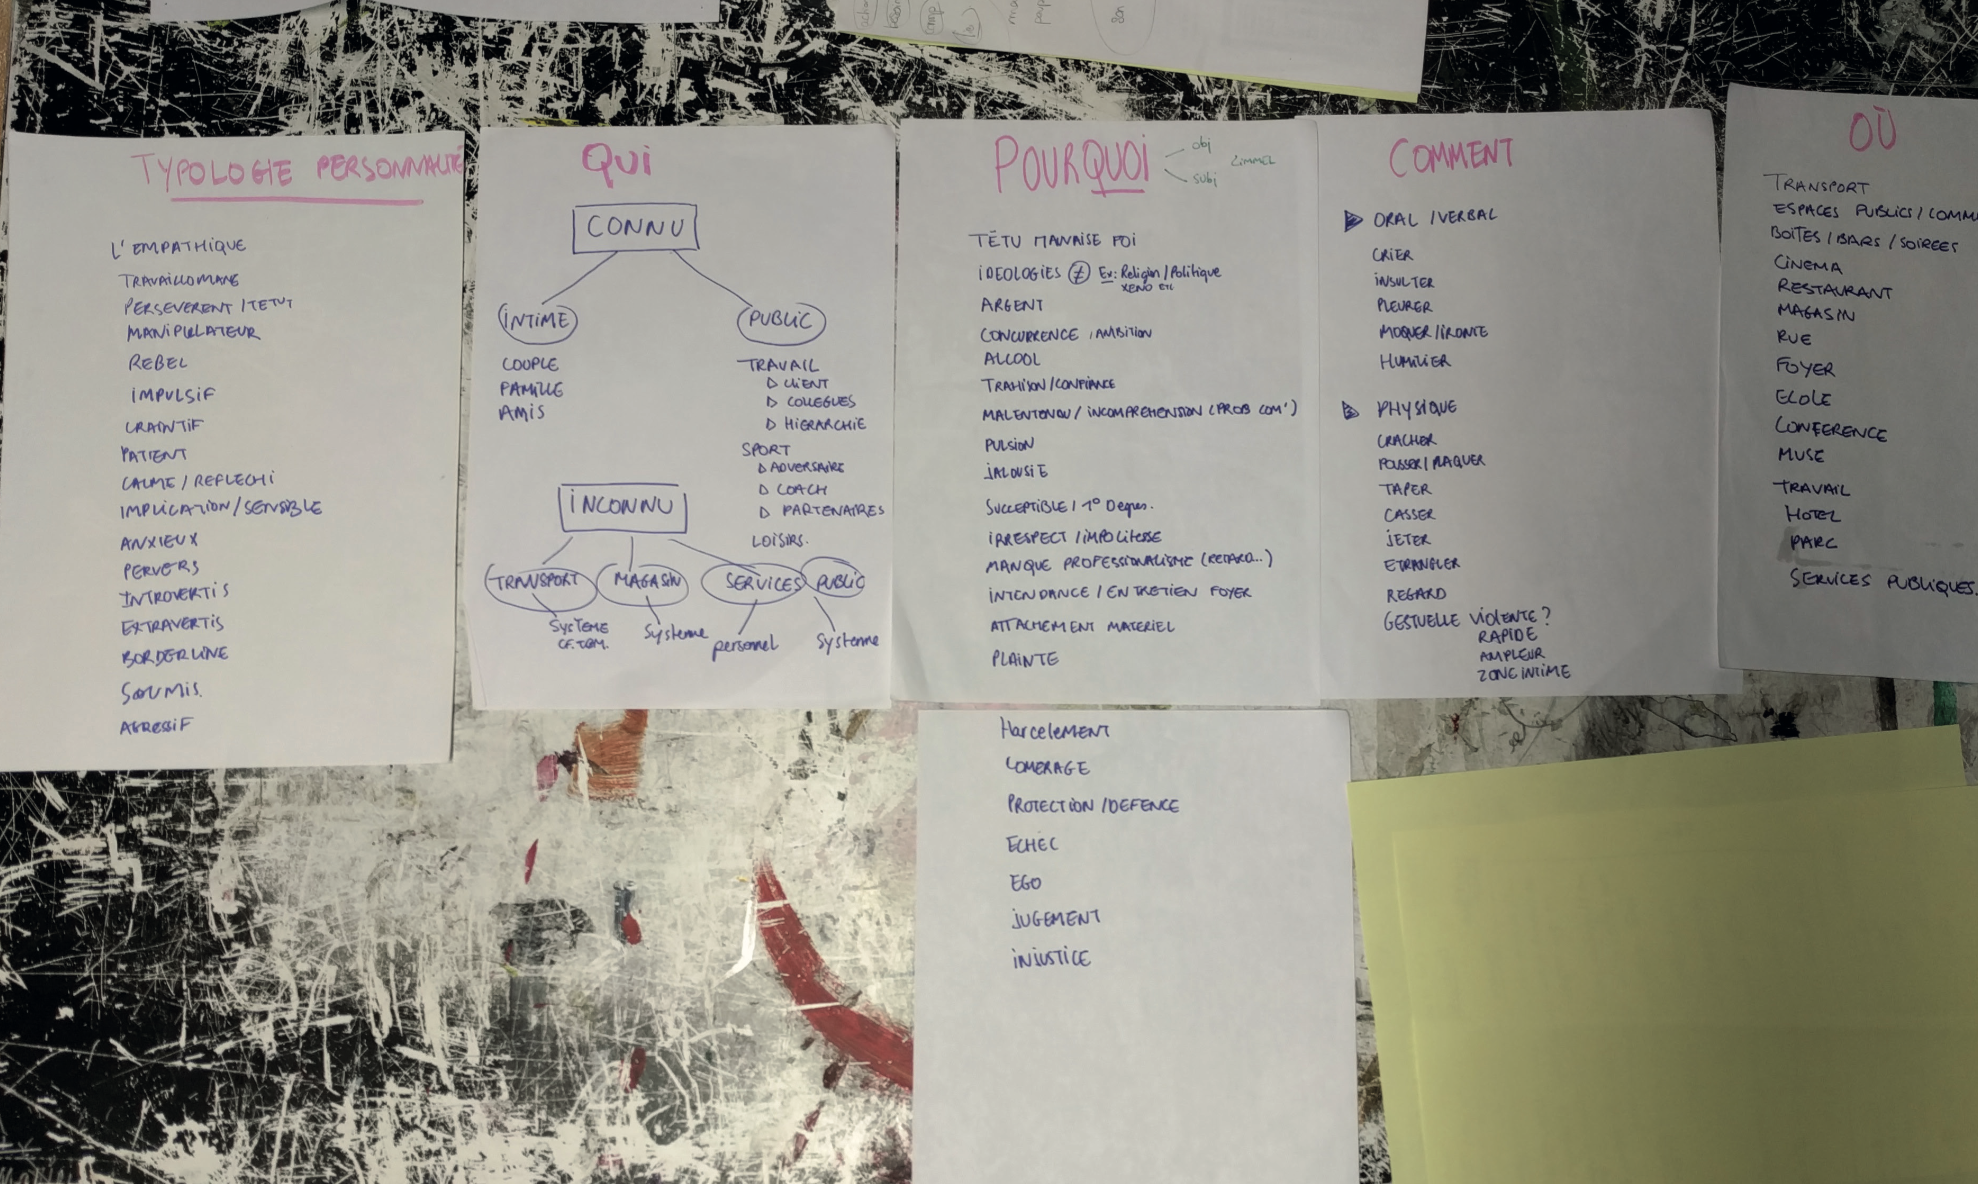 TYPOLOGIE PERSONNALITÉ
L'EMPATHIQUE
TRAVAILLOMANE
PERSEVERENT / TETUT
MANIPULATEUR
REBEL
IMPULSIF
CRAINTIF
PATIENT
CALME / REFLECHI
IMPLICATION / SENSIBLE
ANXIEUX
PERVERS
INTROVERTIS
EXTRAVERTIS
BORDERLINE
SOUMIS.
AGRESSIF
QUI
CONNU
INTIME
COUPLE
FAMILLE
AMIS
PUBLIC
TRAVAIL
CLIENT
COLLEGUES
HIERARCHIE
SPORT
ADVERSAIRE
COACH
PARTENAIRES
LOISIRS.
INCONNU
TRANSPORT MAGASIN SERVICES PUBLIC
SYSTEME Systeme personnel Systeme
POURQUOI
obj
subj
TÊTU MAUVAISE FOI
IDEOLOGIES ≠ Ex: Religion / Politique
XENO ETC
ARGENT
CONCURRENCE, AMBITION
ALCOOL
TRAHISON / CONFIANCE
MALENTENDU / INCOMPREHENSION (PROB COM')
PULSION
JALOUSIE
SUCCEPTIBLE / 1° Degres.
IRRESPECT / IMPOLITESSE
MANQUE PROFESSIONALISME (RETARD...)
INTENDANCE / ENTRETIEN FOYER
ATTACHEMENT MATERIEL
PLAINTE
HarceleMENT
COMERAGE
PROTECTION / DEFENCE
ECHEC
EGO
JUGEMENT
INJUSTICE
COMMENT
ORAL / VERBAL
CRIER
INSULTER
PLEURER
MOQUER / IRONIE
HUMILIER
PHYSIQUE
CRACHER
POUSSER / PLAQUER
TAPER
CASSER
JETER
ETRANGLER
REGARD
GESTUELLE VIOLENTE ?
RAPIDE
AMPLEUR
ZONE INTIME
OÙ
TRANSPORT
ESPACES PUBLICS / COMMU
BOITES / BARS / SOIREES
CINEMA
RESTAURANT
MAGASIN
RUE
FOYER
ECOLE
CONFERENCE
MUSE
TRAVAIL
HOTEL
PARC
SERVICES PUBLIQUES.